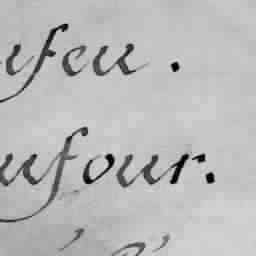 ufeu.
ufour.